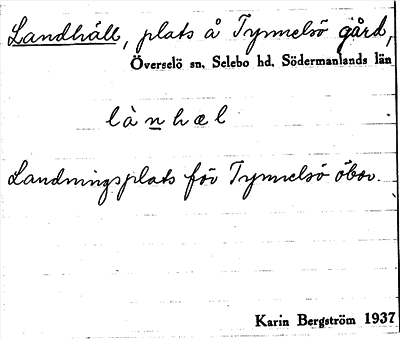 Landhäll, plats å Tynnelsö gård,
Överselö sn. Selebo hd. Södermanlands län
lànhæl
Landningsplats för Tynnelsö öbor.
Karin Bergström 1937